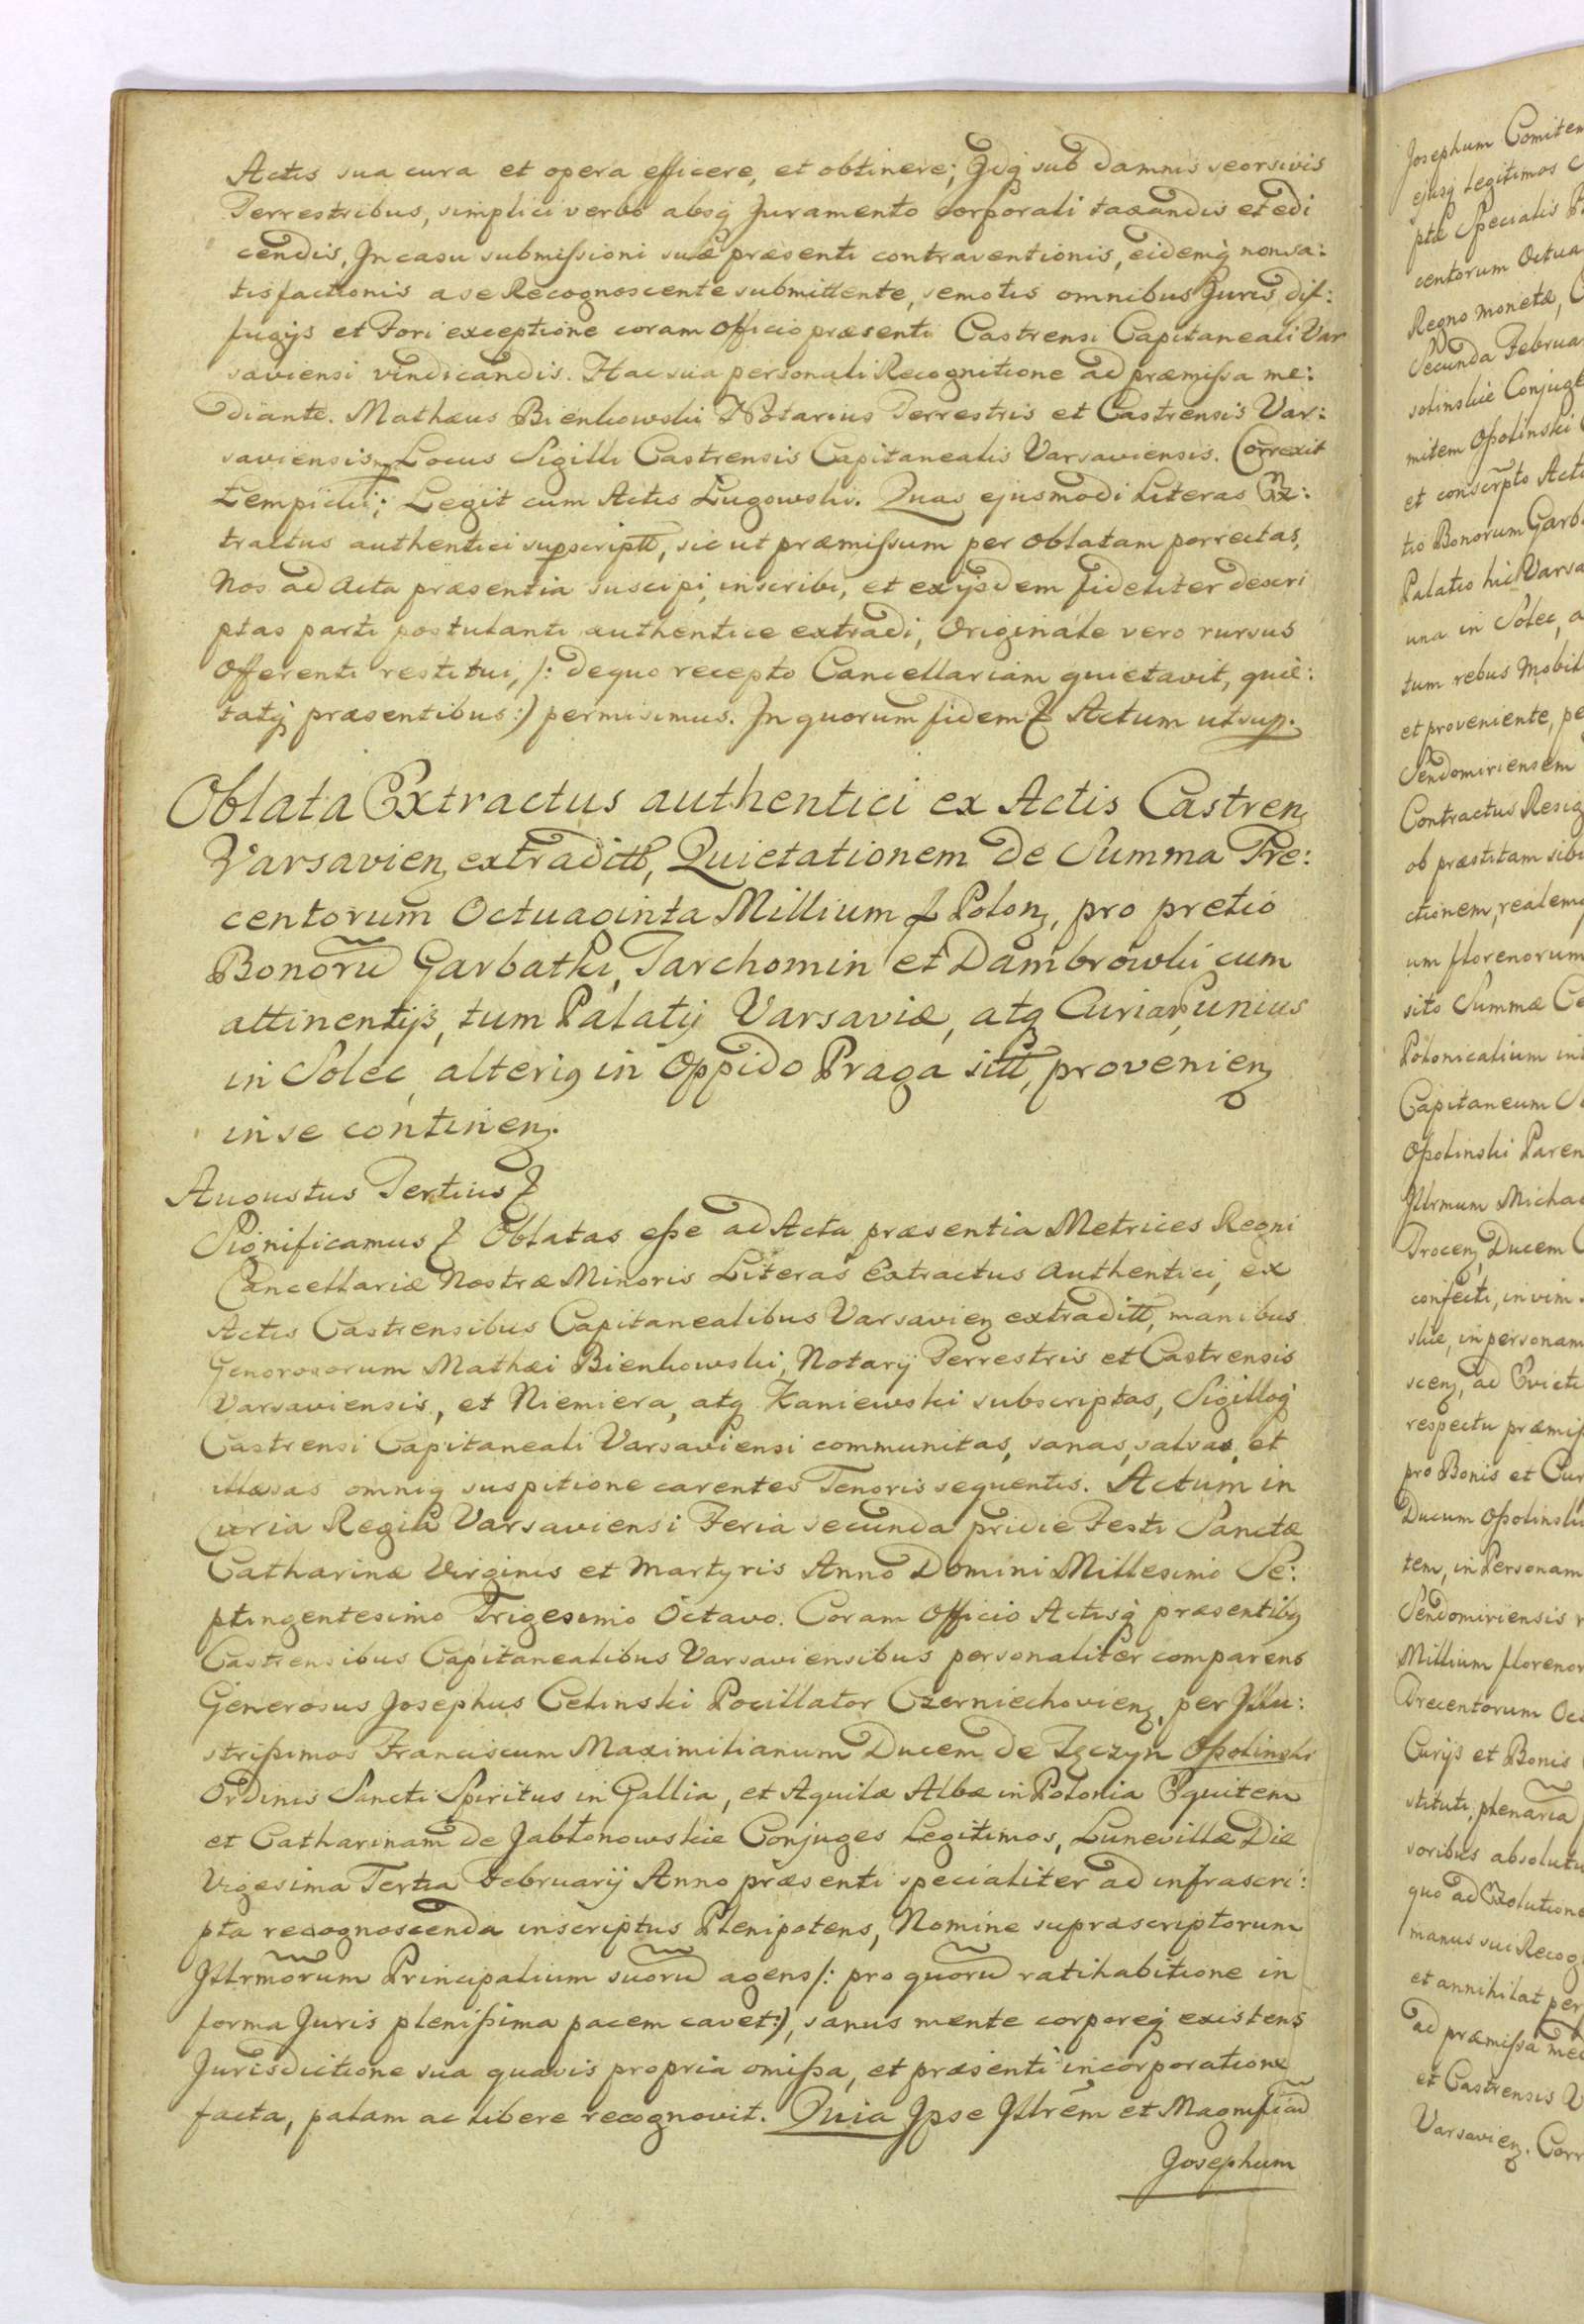 Actis sua cura et opera efficere, et obtinere; Idq sub damnis seorsivis
Terrestribus, simplici verbo absq Juramento corporali taxandis et edi
cendis, In casu submissioni suæ præsenti contraventionis, eidemq nonsa:
tisfactionis a se Recognoscente submittente, semotis omnibus Juris dif:
fugijs et Fori exceptione coram Officio præsenti Castrensi Capitaneali Var
saviensi vindicandis. Hac sua personali Recognitione ad præmissa me:
diante. Mathæus Bienkowski Notarius Terrestris et Castrensis Var:
saviensis Locus Sigilli Castrensis Capitanealis Varsaviensis. Correxit
Lempicki; Legit cum Actis Lugowski. Quas ejusmodi Literas Ex:
tractus authentici suprascriptt, sicut præmissum per oblatam porrectas,
Nos ad Acta præsentia suscipi, inscribi, et ex ijsdem fideliter descri
ptas parti postulanti authentice extradi, Originale vero rursus
Offerenti restitui, /: de quo recepto Cancellariam quietavit, quie:
tatq præsentibus :/ permisimus. In quorum fidem Actum ut sup.
Oblata Extractus authentici ex Actis Castren
Varsavien extraditt, Quietationem de Summa Tre:
centorum Octuaginta Millium f Polon, pro pretio
Bonorũ Garbatki, Tarchomin et Dambrowki cum
attinentijs, tum Palatij Varsaviæ, atq Curiar, unius
in Solec, alteriq in Oppido Praga sitt, provenien
in se continen.
Augustus Tertius
Significamus Oblatas esse ad Acta præsentia Metrices Regni
Cancellariæ Nostræ Minoris Literas Extractus Authentici, ex
Actis Castrensibus Capitanealibus Varsavien extraditt, manibus
Generosorum Mathæi Bienkowski, Notarij Terrestris et Castrensis
Varsaviensis, et Niemiera, atq Kaniewski subscriptas, Sigilloq
Castrensi Capitaneali Varsaviensi communitas, sanas, salvas, et
illæsas omniq suspitione carentes Tenoris sequentis. Actum in
Curia Regia Varsaviensi Feria secunda pridie Festi Sanctæ
Catharinæ Virginis et Martyris Anno Domini Millesimo Se:
ptingentesimo Trigesimo Octavo. Coram Officio Actisq præsentibq
Castrensibus Capitanealibus Varsaviensibus personaliter comparens
Generosus Josephus Celinski Pocillator Czerniechovien, per Illu:
strissimos Franciscum Maximilianum Ducem de Tęczyn Ossolinski
Ordinis Sancti Spiritus in Gallia, et Aquilæ Albæ in Polonia Equitem
et Catharinam de Jabłonowskie Conjuges Legitimos, Lunevillæ Die
Vigesima Tertia Februarij Anno præsenti specialiter ad infrascri:
pta recognoscenda inscriptus Plenipotens, Nomine suprascriptorum
Illrmorum Principalium suorũ agens /: pro quorũ ratihabitione in
forma Juris plenissima pacem cavet :/, sanus mente corporeq existens
Jurisdictione sua quavis propria omissa, et præsenti incorporatione
facta, palam ac libere recognovit. Quia Ipse Illrem et Magnificũ
Josephum
Josephum Comitem
ejusq Legitimos
pta Specialis
centorum Octua
Regno monetæ,
Secunda Februa
solinskie Conjuge
mitem Ossolinski
et conscrpto Acti
tio Bonorum Garb
Palatio hic Varsa
una in Solec, a
tum rebus Mobil
et proveniente, pe
Sendomiriensem
Contractus Resig
ob præstitam sibi
ctionem, realemq
um florenorum
sito Summæ Ce
Polonicalium in
Capitaneum
Ossolinski Paren
Illrmum Michae
Trocen, Ducem
confecti, in vim
skie, in personam
scen, ad Evicti
respectu præmiss
pro Bonis et Cur
Ducum Ossolinski
tem, in Personam
Sendomiriensis
Millium floreno
Trecentorum Oc
Curijs et Bonis
stituti, plenaria
soribus absolut
quo ad Exolutione
manus sui Recog
et annihilat per
ad præmissa me
et Castrensis V
Varsavien. Corr